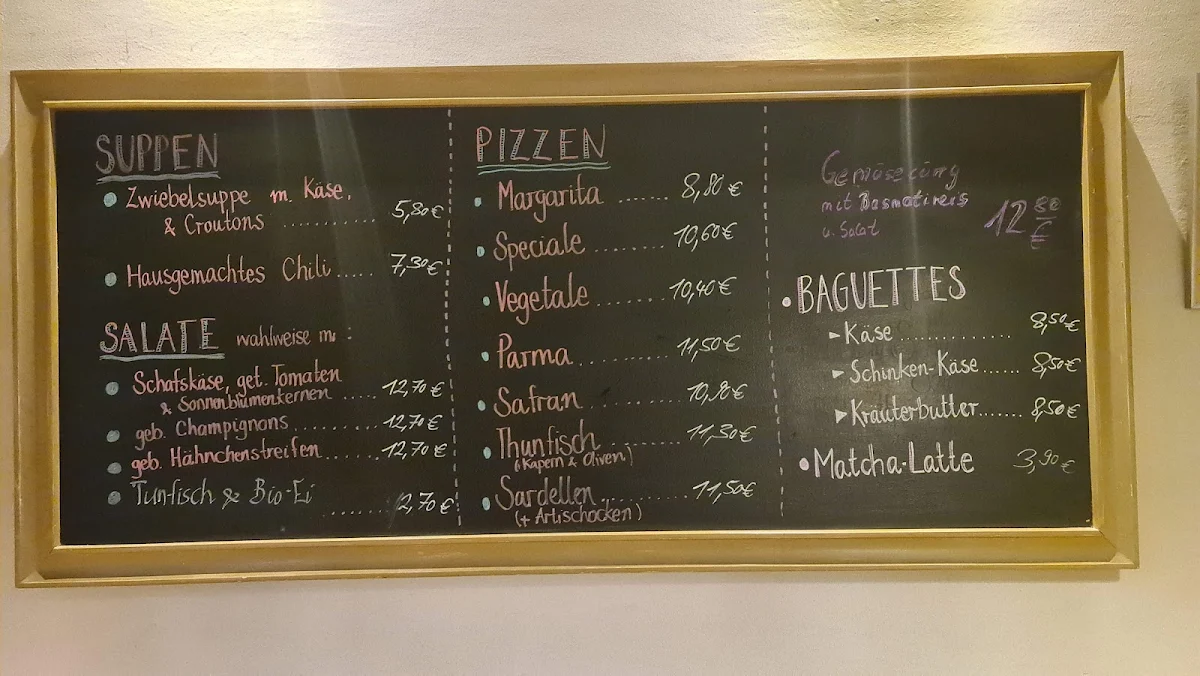 SUPPEN
• Zwiebelsuppe m. Käse,
& Croutons ......... 5,80€
• Hausgemachtes Chili ..... 7,30€
SALATE wahlweise m. :
• Schafskäse, get. Tomaten
& Sonnenblumenkernen ..... 12,70€
• geb. Champignons ......... 12,70€
• geb. Hähnchenstreifen ...... 12,70€
• Tunfisch & Bio-Ei
........ 12,70€
PIZZEN
• Margarita ...... 8,80€
• Speciale ......... 10,60€
• Vegetale ......... 10,40€
• Parma ......... 11,50€
• Safran ......... 10,90€
• Thunfisch ......... 11,30€
(Kapern & Oliven)
• Sardellen ......... 11,50€
(+ Artischocken)
Gemüsecurry
mit Basmatireis
u. Salat 12 80 €
• BAGUETTES
► Käse ............. 8,50€
► Schinken-Käse ...... 8,50€
► Kräuterbutter ...... 8,50€
• Matcha-Latte 3,90€